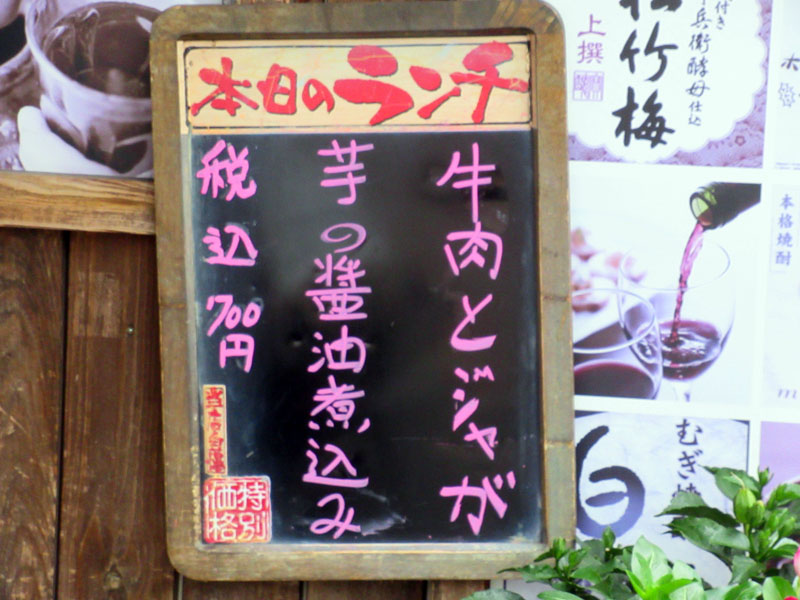 本日のランチ
牛肉とジャが
芋の醬油煮込み
税込700円
特別
価格
上撰
松竹梅
兵衛酵母仕込
本格焼酎
むぎ焼
白